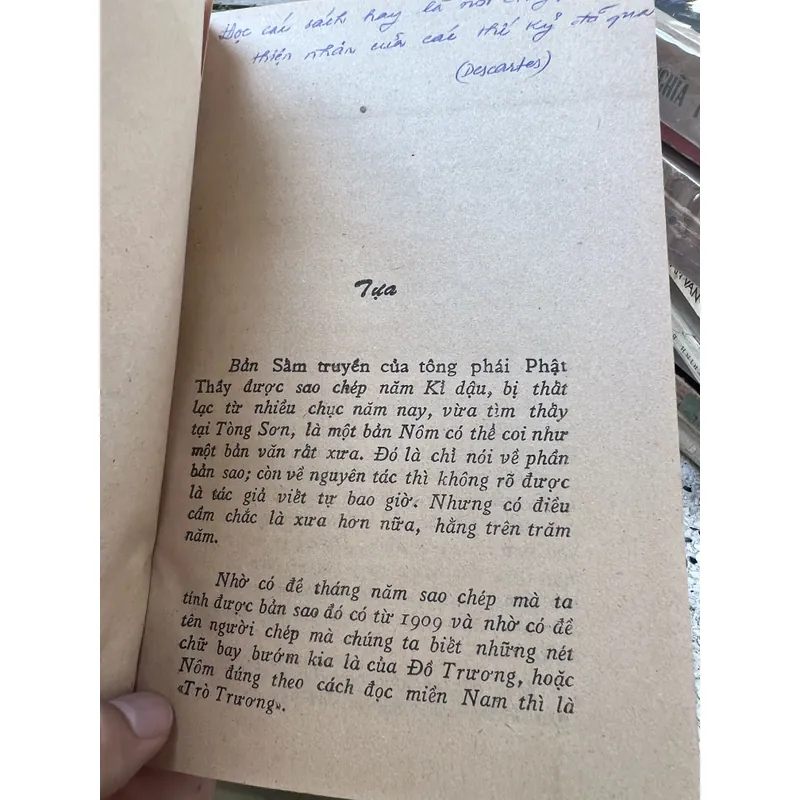 Đọc các sách hay là nói
thiện nhân của các thế kỷ đã qua
(Descartes)
NGHĨA
VAN
Tựa
Bản Sấm truyền của tông phái Phật
Thầy được sao chép năm Kỉ dậu, bị thất
lạc từ nhiều chục năm nay, vừa tìm thấy
tại Tòng Sơn, là một bản Nôm có thể coi như
một bản văn rất xưa. Đó là chỉ nói về phần
bản sao; còn về nguyên tác thì không rõ được
là tác giả viết tự bao giờ. Nhưng có điều
cầm chắc là xưa hơn nữa, hằng trên trăm
năm.
Nhờ có đề tháng năm sao chép mà ta
tính được bản sao đó có từ 1909 và nhờ có đề
tên người chép mà chúng ta biết những nét
chữ bay bướm kia là của Đồ Trương, hoặc
Nôm đúng theo cách đọc miền Nam thì là
«Trò Trương».